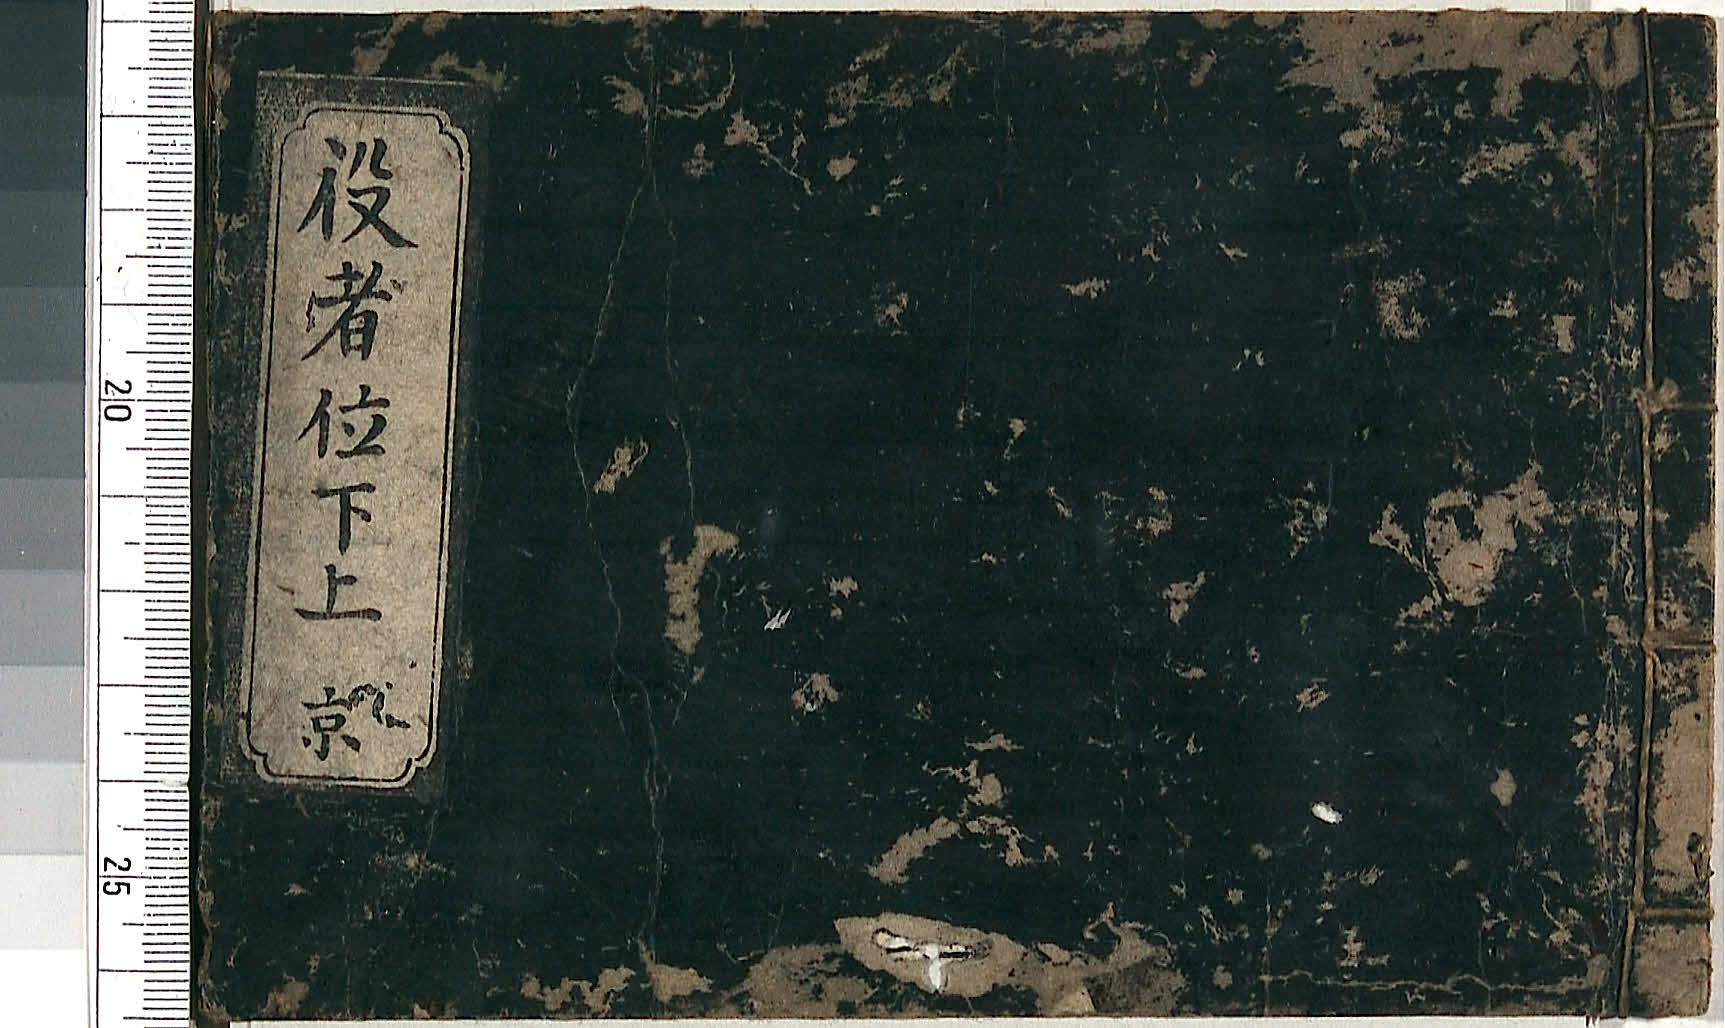 役者位下上 京
20
25